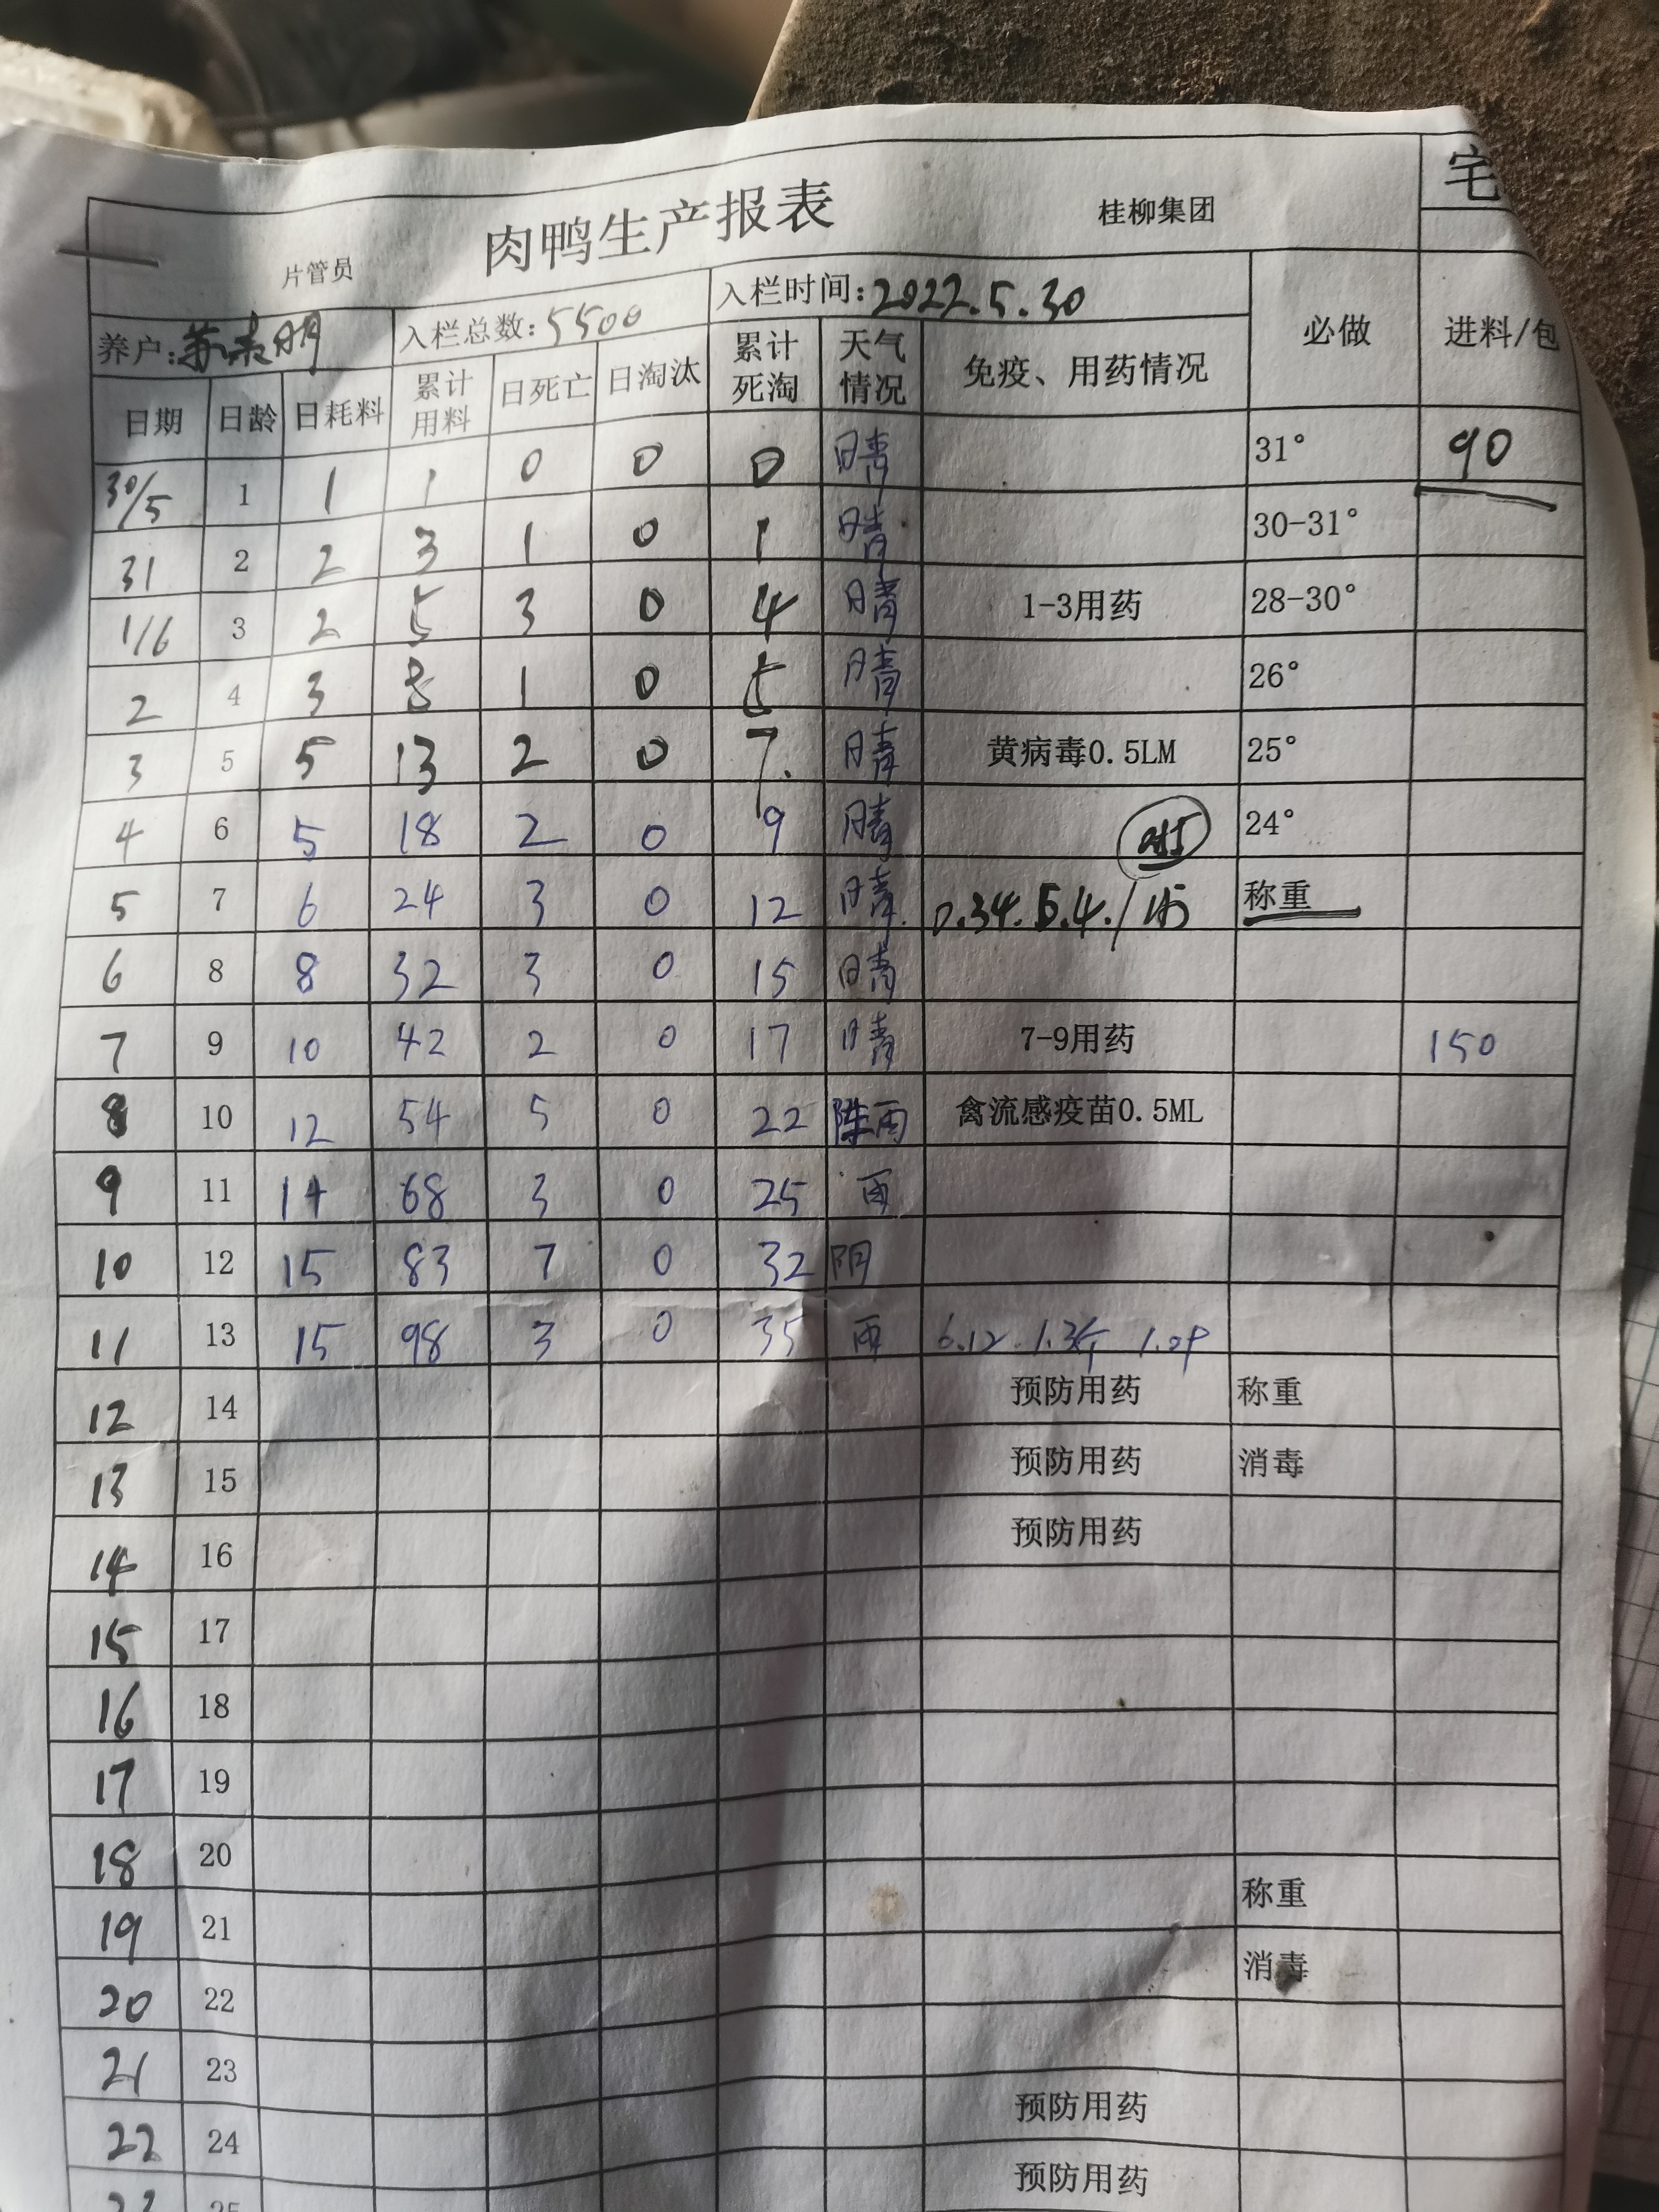 宅
肉鸭生产报表 桂柳集团
片管员
养户: 入栏总数:5500 入栏时间:2022.5.30 必做 进料/包
日期 日龄 日耗料 累计用料 日死亡 日淘汰 累计死淘 天气情况 免疫、用药情况
30/5 1 1 1 0 0 0 晴 31° 90
31 2 2 3 1 0 1 晴 30-31°
1/6 3 2 5 3 0 4 晴 1-3用药 28-30°
2 4 3 8 1 0 5 晴 26°
3 5 5 13 2 0 7. 晴 黄病毒0.5LM 25°
4 6 5 18 2 0 9 晴 24°
5 7 6 24 3 0 12 晴. 称重
6 8 8 32 3 0 15 晴
7 9 10 42 2 0 17 晴 7-9用药 150
8 10 12 54 5 0 22 雨 禽流感疫苗0.5ML
9 11 14 68 3 0 25 雨
10 12 15 83 7 0 32 阴
11 13 15 98 3 0 35 雨 6.12
12 14 预防用药 称重
13 15 预防用药 消毒
14 16 预防用药
15 17
16 18
17 19
18 20
19 21 称重
20 22 消毒
21 23
22 24 预防用药
23 25 预防用药